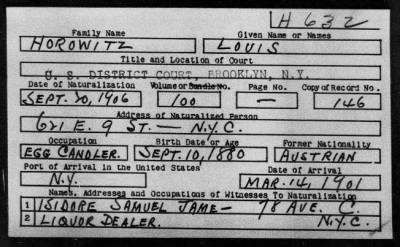 H 632
Family Name Given Name or Names
HOROWITZ LOUIS
Title and Location of Court
U. S. DISTRICT COURT, BROOKLYN, N.Y.
Date of Naturalization Volume or Bundle No. Page No. Copy of Record No.
SEPT. 20, 1906 100 — 146
Address of Naturalized Person
621 E. 9 ST. — N.Y.C.
Occupation Birth Date or Age Former Nationality
EGG CANDLER. SEPT. 10, 1880 AUSTRIAN
Port of Arrival in the United States Date of Arrival
N.Y. MAR. 14, 1901
Names, Addresses and Occupations of Witnesses To Naturalization
1 ISIDORE SAMUEL JAME — 98 AVE. C.
2 LIQUOR DEALER. N.Y.C.